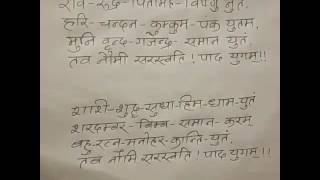 रवि-रुद्र-पितामह-विष्णु नुतं,
हरि-चन्दन-कुम्कुम-पंक युतम्,
मुनि वृन्द-गजेन्द्र-समान युतं,
तव नौमी सरस्वति! पाद युगम्!!
शाशि-शुद्ध-सुधा-हिम-धाम-युतं
शरदम्बर-बिम्ब-समान-करम्
बहु-रत्न-मनोहर-कान्ति-युतं,
तव नौमि सरस्वति! पाद युगम्!!